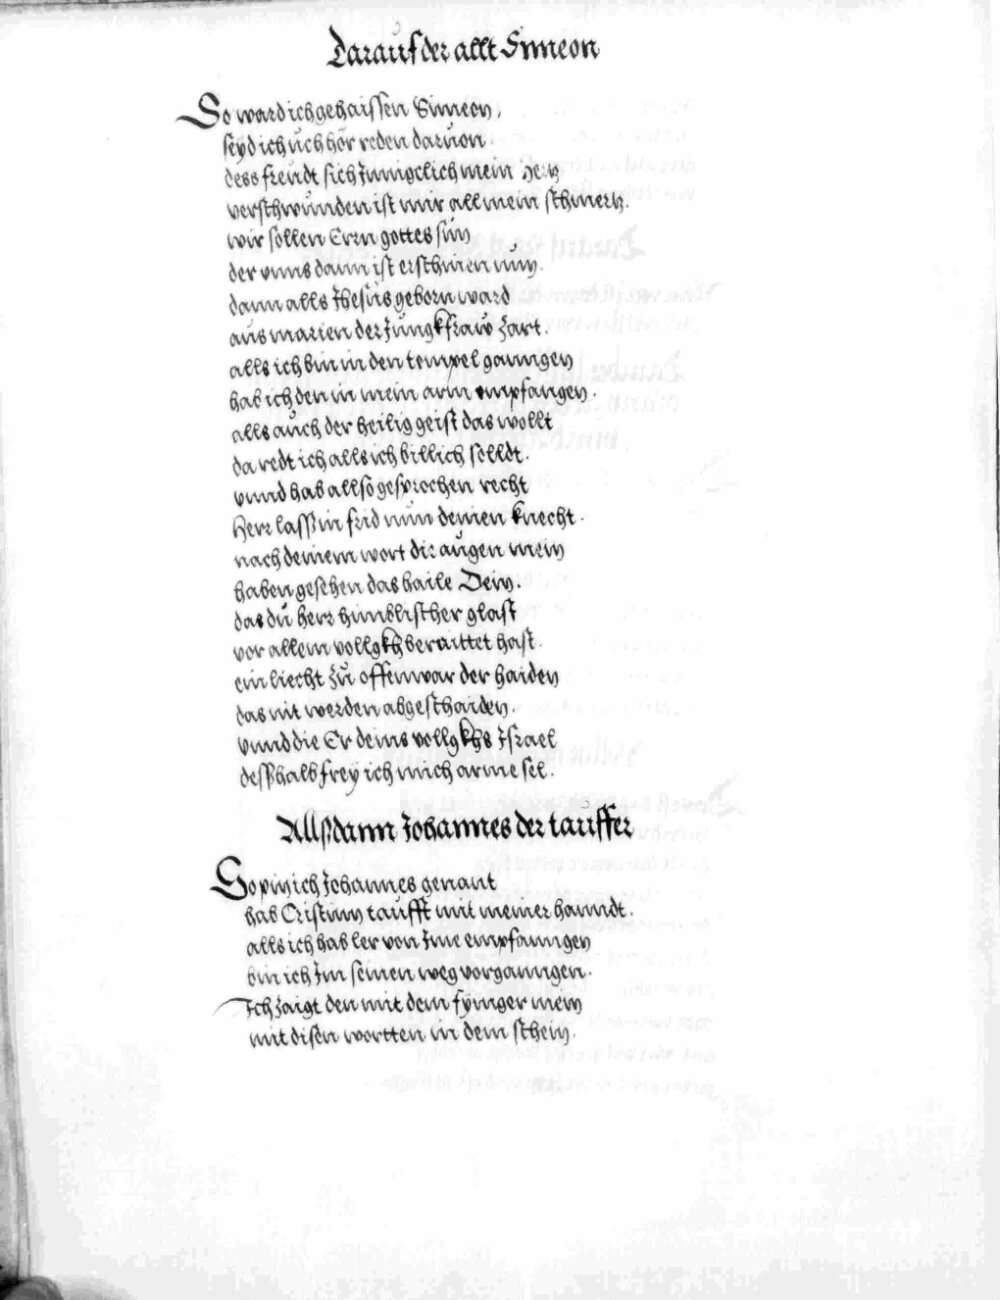 Darauf der allt Simeon
So ward ich gehaissen Simeon,
seyd ich üch hör reden daruon
dess freudt sich Innigclich mein herz
verschwunden ist mir all mein schmerz.
wir sollen Eren gottes sün
der vnns dann ist erschinen nün.
dann alls Jhesus geborn ward
aus marien der Jungkfraw zart.
alls ich bin in den tempel ganngen
hab ich den in mein arm empfangen.
alls auch der heilig geist das wollt
da redt ich alls ich billich solldt.
vnnd hab allso gesprochen recht
Herr lass in frid nun deinen knecht.
nach deinem wort die augen mein
haben gesehen das haile Dein.
das du herr himblischer glast
vor allem vollgkh beraittet hast.
ein liecht zu offenwar der haiden
das nit werden abgeschaiden.
vnnd die Er deins vollgkhs Israel
desshalb frey ich mich arme sel.
Allssdann Johannes der tauffer
So pin ich Johannes genant
hab Cristum taufft mit meiner hanndt.
alls ich hab ler von Ime empfanngen
bin ich Im seinen weg vorganngen.
Ich zaigt den mit dem fynger mein
mit disen wortten in dem schein.